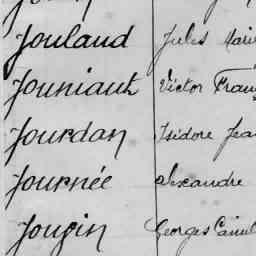 Joulaud Jules Marie
Jouniaux Victor Fran
Jourdan Isidore Jean
Journée Alexandre
Jougin Georges Camil